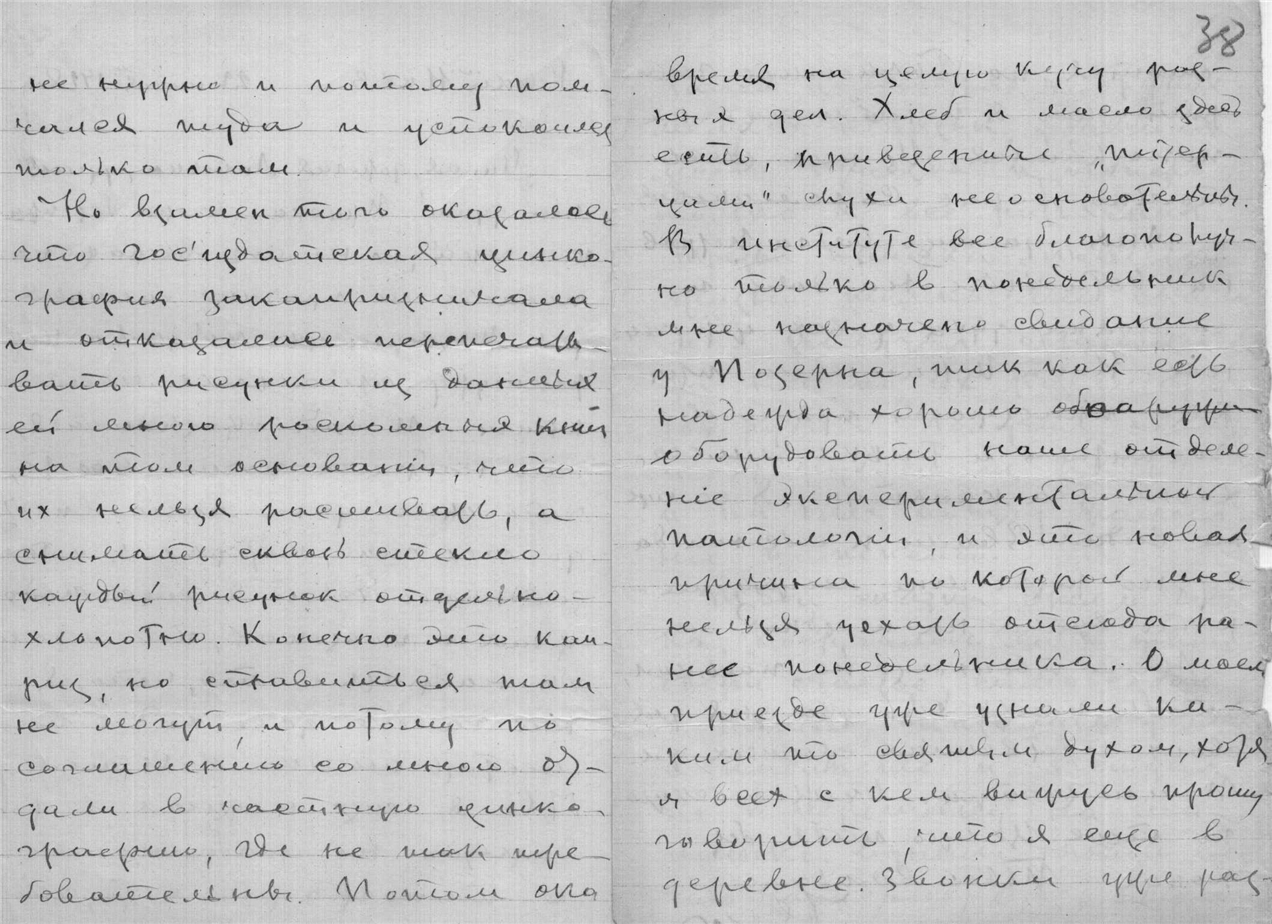 не нужно и потому пом-
чался туда и успокоился
только там.
Но взамен того оказалось
что гос'издатская цинко-
графия закапризничала
и отказалась перепечаты-
вать рисунки из данных
ей мною роскошных книг
на том основании, что
их нельзя расшивать, а
снимать сквозь стекло
каждый рисунок отдельно -
хлопотно. Конечно это кап-
риз, но справиться там
не могут, и потому по
соглашению со мною от-
дали в частную цинко-
графию, где не так тре-
бовательны. Потом она
38
время на целую кучу раз-
ных дел. Хлеб и масло здесь
есть, приведенные „питер-
цами" слухи неосновательны.
В институте все благополуч-
но только в понедельник
мне назначено свидание
у Позерна, так как есть
надежда хорошо
оборудовать наше отделе-
ніе экспериментальной
патологіи, и это новая
причина по которой мне
нельзя уехать отсюда ра-
нее понедельника. О моем
приезде уже узнали ка-
ким то святым духом, хотя
я всех с кем вижусь прошу
говорить, что я еще в
деревне. Звонки уже раз-